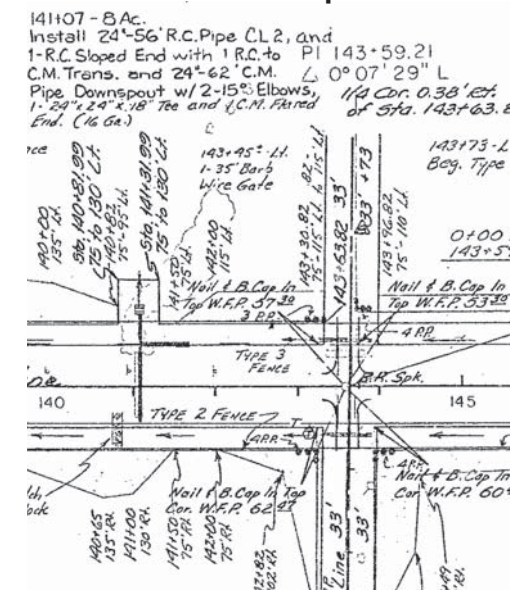 141+07 - 8 Ac.
Install 24"-56' R.C. Pipe CL 2, and
1-R.C. Sloped End with 1 R.C. to
C.M. Trans. and 24"-62' C.M.
Pipe Downspout w/2-15° Elbows,
1-24"x24"x18" Tee and 1 C.M. Flared
End. (16 Ga.)
PI 143+59.21
∠ 0°07'29" L
1/4 Cor. 0.38' Rt.
of Sta. 143+63.8
143+45± Lt.
1-35' Barb
Wire Gate
143+73-L
Beg. Type
0+00
143+5
140+00
135' Lt.
Sta. 140+81.99
75' to 130' Lt.
140+82
75'-95' Lt.
Sta. 141+31.99
75' to 130' Lt.
141+50
75' Lt.
142+00
115' Lt.
143+30.82
75'-115' Lt.
143+63.82 33'
33' +73
143+96.82
75'-110' Lt.
Nail & B.Cap In
Top W.F.P. 57 30
Nail & B.Cap In
Top W.F.P. 53 30
3 P.P.
4 P.P.
TYPE 3
FENCE
B.R. Spk.
140
145
TYPE 2 FENCE
T
4 P.P.
4 P.P.
Nail & B.Cap In Top
Cor. W.F.P. 62 47
Nail & B.Cap In
Cor. W.F.P. 60
140+65
135' Rt.
141+00
130' Rt.
141+50
75' Rt.
142+00
75' Rt.
Line 33'
33'